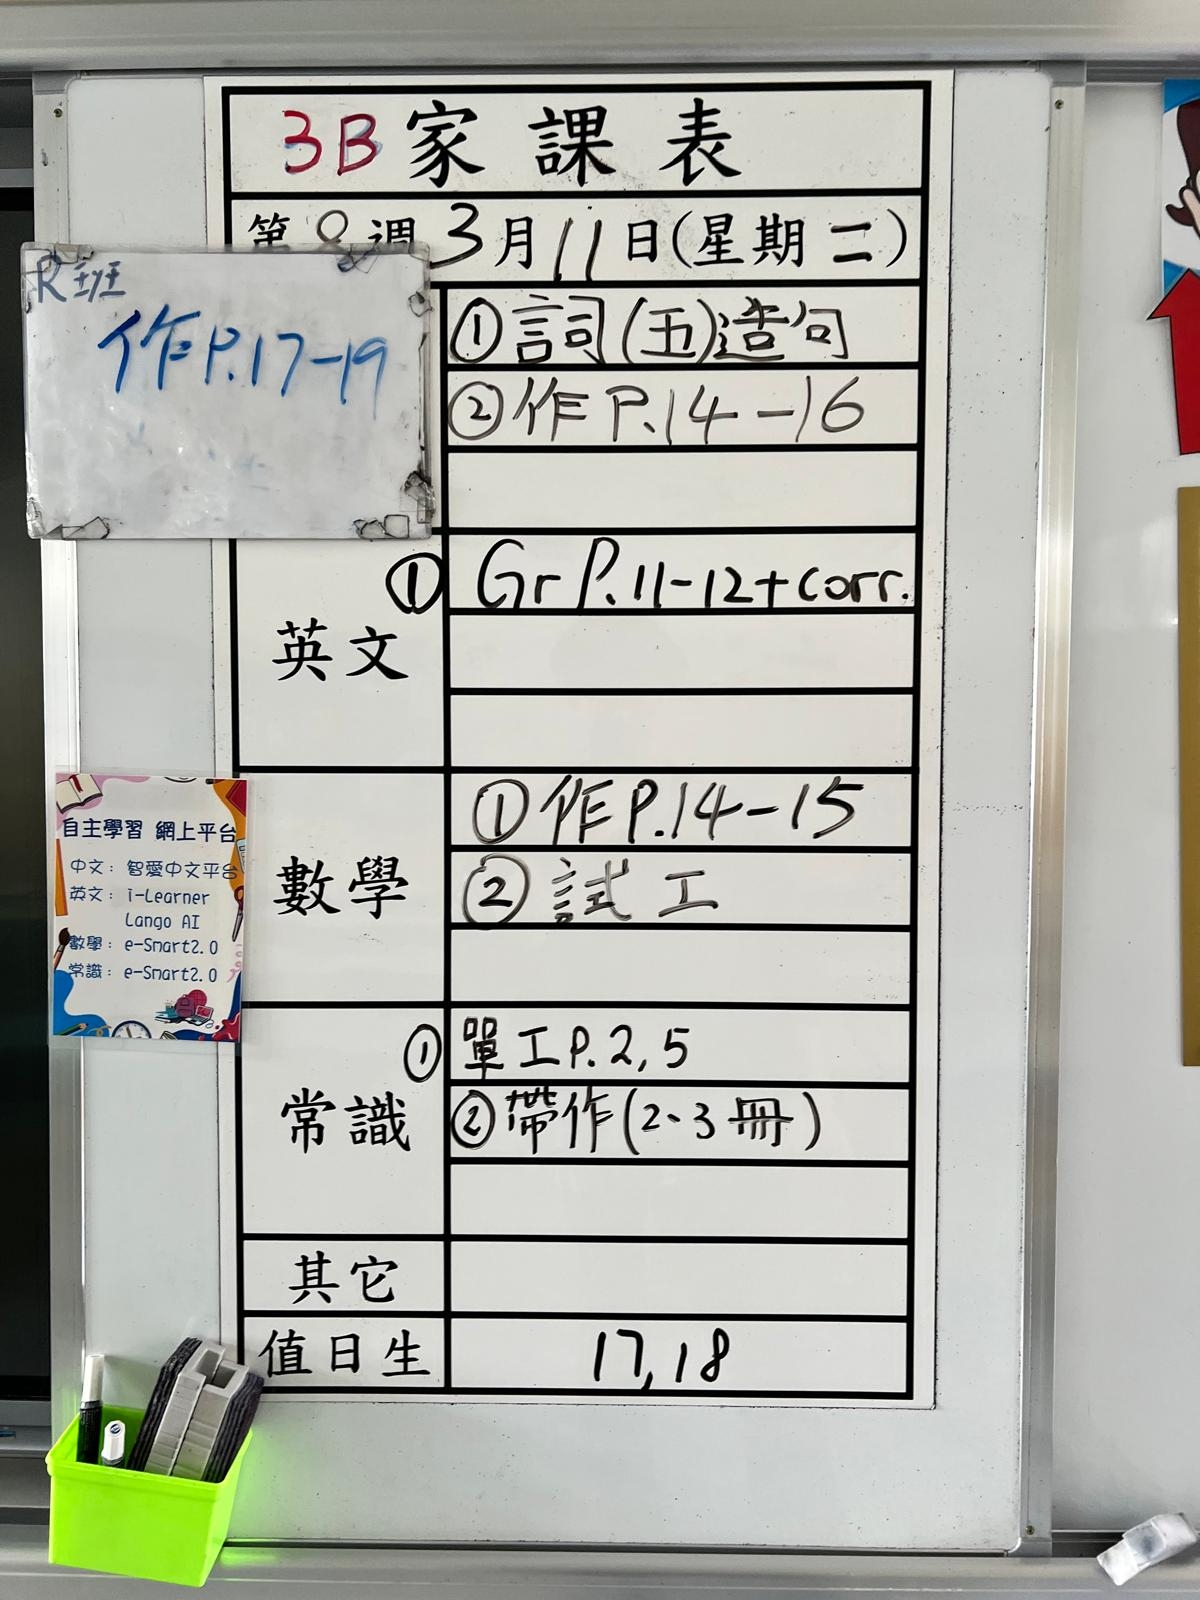 3B家課表
第8週3月11日(星期二)
R班
作P.17-19
①詞(五)造句
②作P.14-16
英文
①Gr P.11-12+corr.
數學
①作P.14-15
②試工
常識
①單工P.2,5
②帶作(2、3冊)
其它
值日生
17,18
自主學習 網上平台
中文：智愛中文平台
英文：i-Learner
Lango AI
數學：e-Smart2.0
常識：e-Smart2.0